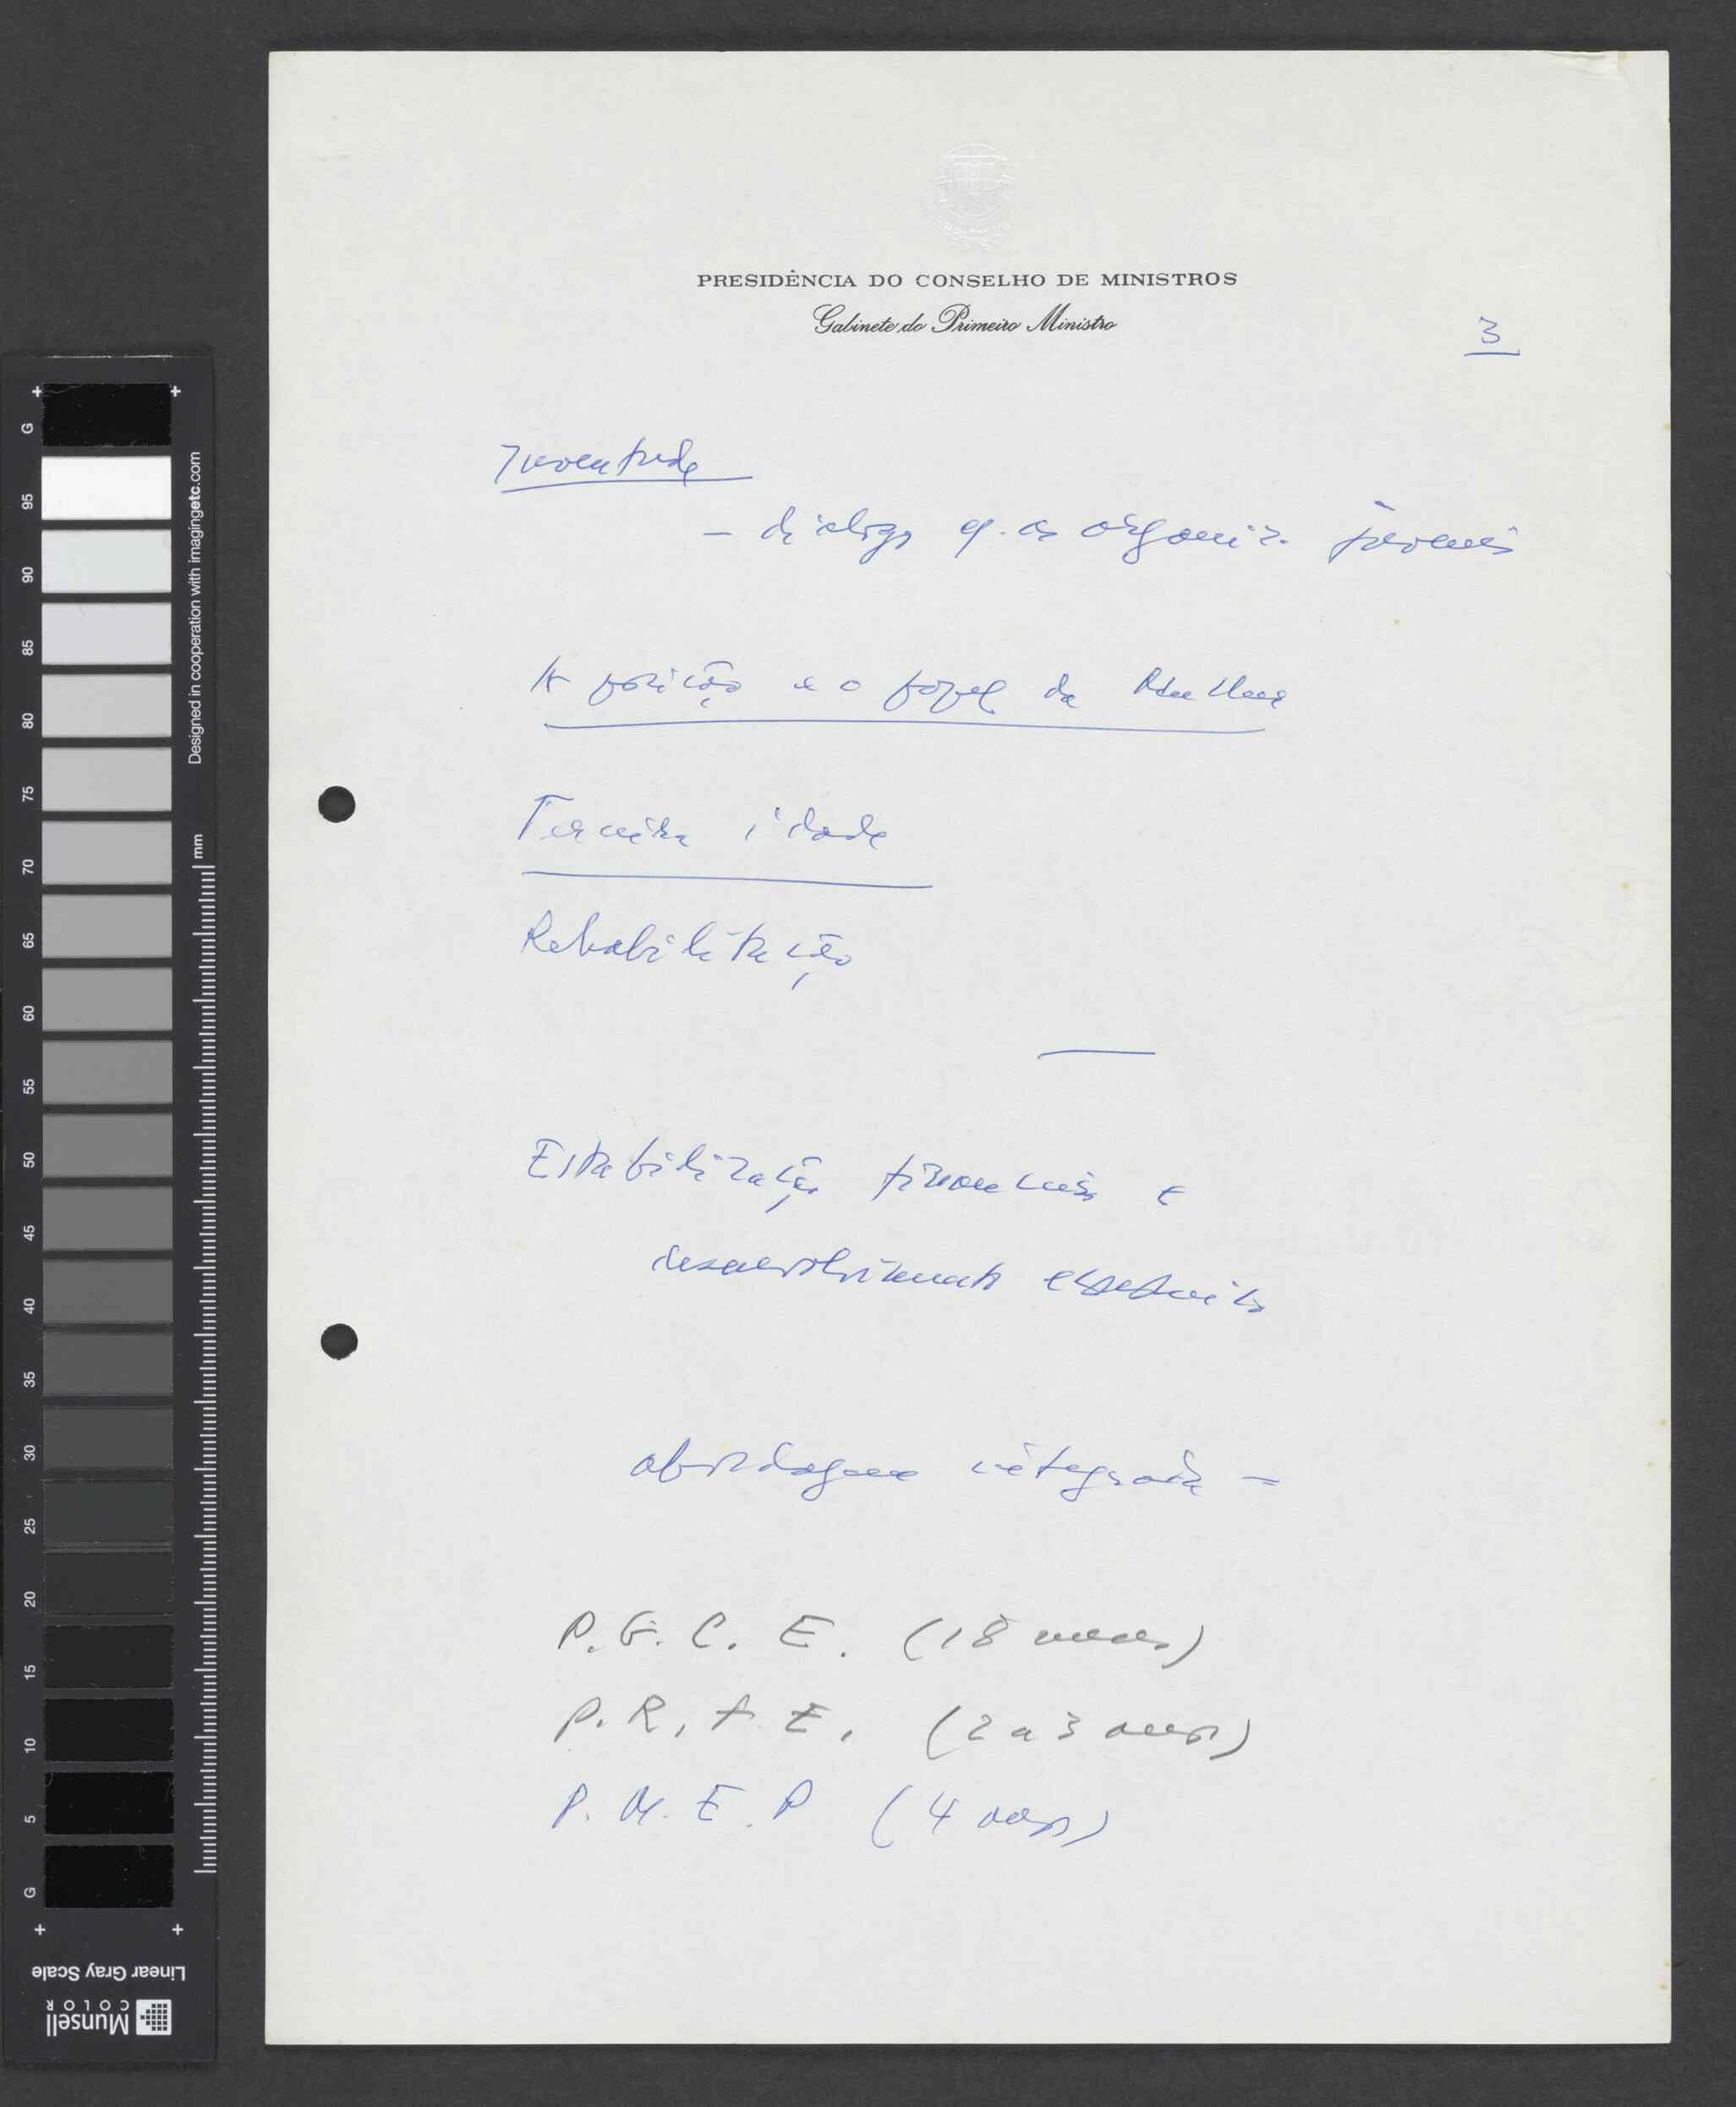 PRESIDÊNCIA DO CONSELHO DE MINISTROS
Gabinete do Primeiro Ministro
3
Juventude
- diálogo c/. as organiz. juvenis
A posição e o papel da Mulher
Terceira idade
Rehabilitação
Estabilização financeira e
desenvolvimento económico
abordagem integrada -
P.G.C.E. (18 meses)
P.R.F.E. (2 a 3 anos)
P.M.E.P (4 anos)
Designed in cooperation with imagingetc.com
mm
G
95
90
85
80
75
70
65
60
55
50
45
40
35
30
25
20
15
10
5
G
Linear Gray Scale
Munsell
COLOR